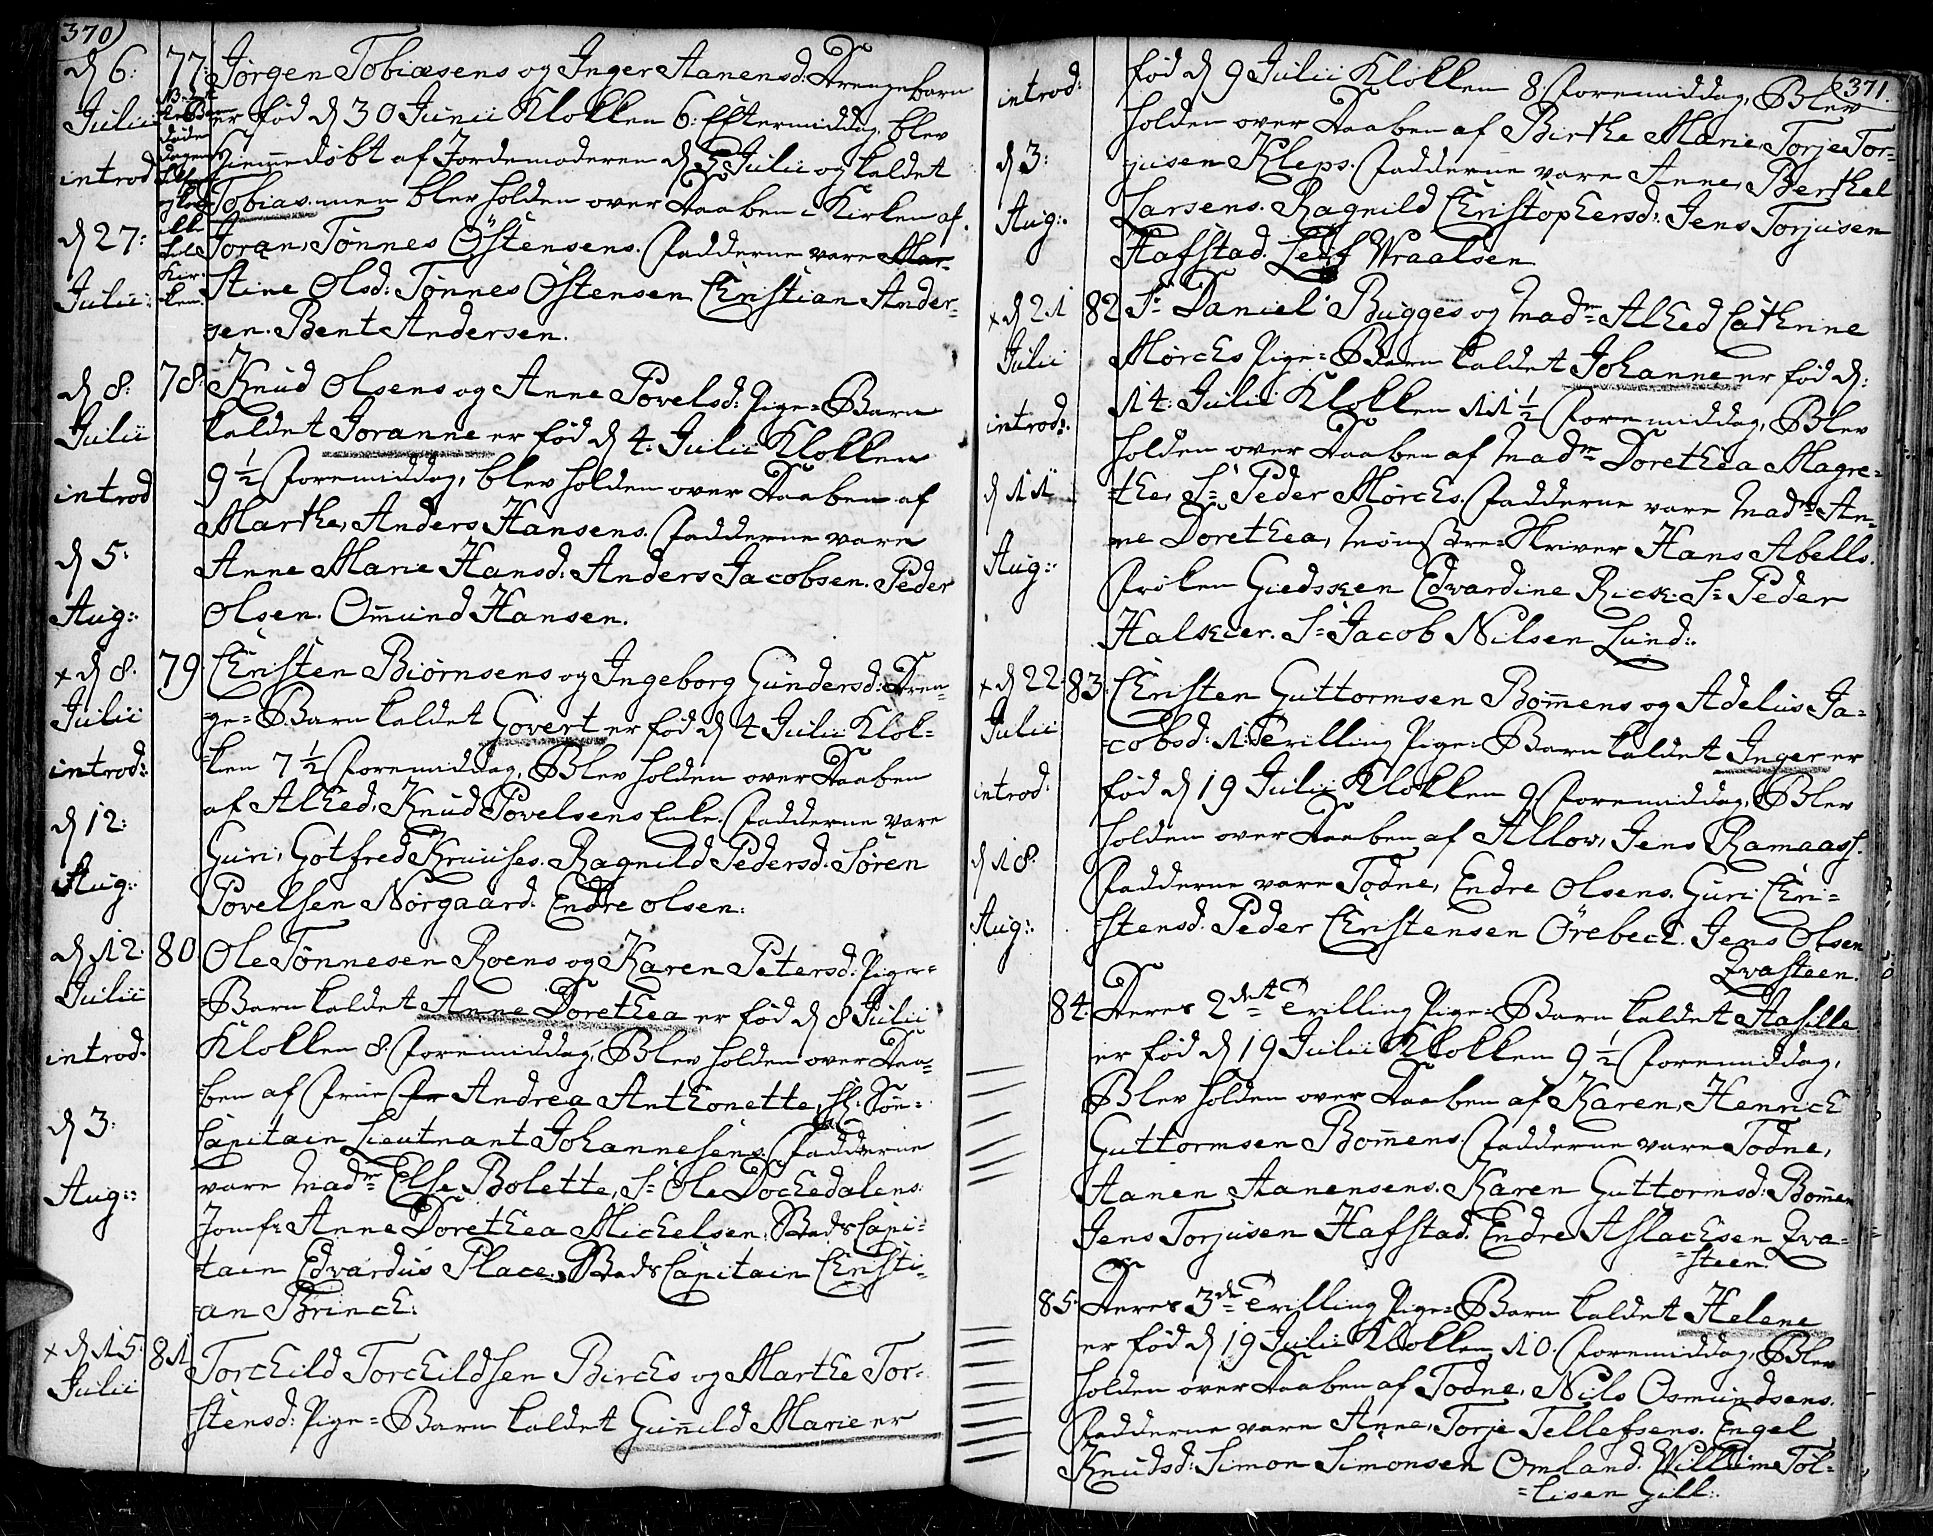 370)
d 6:
Julii
introd
d 27:
Julii:
77.
Jørgen Tobiæsens og Inger Aanensd: Drengebarn
er fød d 30 Junii Klokken 6: Eftermiddag, blev
Hiemmedøbt af Jordemoderen d 3 Julii og kaldet
Tobias. men blev holden over Daaben i Kirken af
Joran, Tønnes Østensens. Fadderne vare Mar-
Stine Olsd: Tønnes Østensen Christian Ander-
sen. Bent Andersen.
d 8:
Julii
introd
d 5:
Aug:
78.
Knud Olsens og Anne Povelsd: Pige-Barn
kaldet Joranne er fød d 4. Julii Klokken
9 1/2 Foremiddag, blev holden over Daaben af
Marthe, Anders Hansens. Fadderne vare
Anne Marie Hansd. Anders Jacobsen. Peder
Olsen. Omund Hansen.
x d 8.
Julii
introd:
d 12:
Aug:
79
Christen Biørnsens og Ingeborg Gundersd: Dren-
ge-Barn kaldet Govert er fød d 4 Julii Klok-
ken 7 1/2 Foremiddag, Blev holden over Daaben
af Alhed, Knud Povelsens Enke. Fadderne vare
Guri, Gotfred Kruuses. Ragnild Pedersd. Søren
Povelsen Nørgaard. Endre Olsen.
d 12:
Julii
introd.
d 3:
Aug:
80
Ole Tønnesen Roens og Karen Petersd: Pige-
-Barn kaldet Anne Dorethea er fød d 8 Julii
Klokken 8. Foremiddag, Blev holden over Daa-
ben af Frue Andrea Anthonette, Hr. Søe-
Capitain Lieutnant Johannesens. Fadderne
vare Mad: Else Bolette, Sr Ole Dochedalens.
Jomfr. Anne Dorethea Michelsen. Capi-
tain Edvardus Place. Capitain Christi-
an Brinch.
x d 15.
Julii
81
Torchild Torchildsen Birchs og Marthe Tor-
stensd: Pige-Barn kaldet Gunild Marie er
371.
introd:
d 3:
Aug:
fød d 9 Julii Klokken 8 Foremiddag, Blev
holden over Daaben af Birthe Marie, Torje Tor-
jusen Kleps. Fadderne vare Anne, Berthel
Larsens. Ragnild Christophersd: Jens Torjusen
Hafstad. Leif Wraalsen
x d 21
Julii
introd:
d 11
Aug:
82
Sr Daniel Bugges og Mad: Alhed Cathrine
Mørchs Pige-Barn kaldet Johanne er fød d:
14. Julii Klokken 11 1/2 Foremiddag, Blev
holden over Daaben af Mad: Dorethea Magre-
the, Sr Peder Mørchs. Fadderne vare Mad: An-
ne Dorethea, Mønstre-Skriver Hans Abells.
Frøken Giedsken Edvardine Rick. Sr Peder
Halskier. Sr Jacob Nilsen Lund:
x d 22.
Julii
introd.
d 18.
Aug:
83.
Christen Guttormsen Bommens og Adelus Ja-
-cobsd: 1. Trilling Pige-Barn kaldet Inger er
fød d 19 Julii Klokken 9 Foremiddag, Blev
holden over Daaben af Allow, Jens Ramaass.
Fadderne vare Todne, Endre Olsens. Guri Chri-
-stensd. Peder Christensen Ørebech. Jens Olsen
Qvasteen.
84.
Deres 2det Trilling Pige-Barn kaldet Stasille
er fød d 19 Julii Klokken 9 1/2 Foremiddag,
Blev holden over Daaben af Karen, Henrich
Guttormsen Bommens. Fadderne vare Todne,
Aanen Aanensens. Karen Guttormsd: Bommen
Jens Torjusen Hafstad. Endre Aslachsen Qva-
-steen.
85.
Deres 3de Trilling Pige-Barn kaldet Helene
er fød d 19 Julii Klokken 10. Foremiddag, Blev
holden over Daaben af Todne, Nils Osmundsens.
Fadderne vare Anne, Torje Tellefsens. Engel
Knudsd: Simon Simonsen Omland. Willum Tøl-
-lisen Gill: